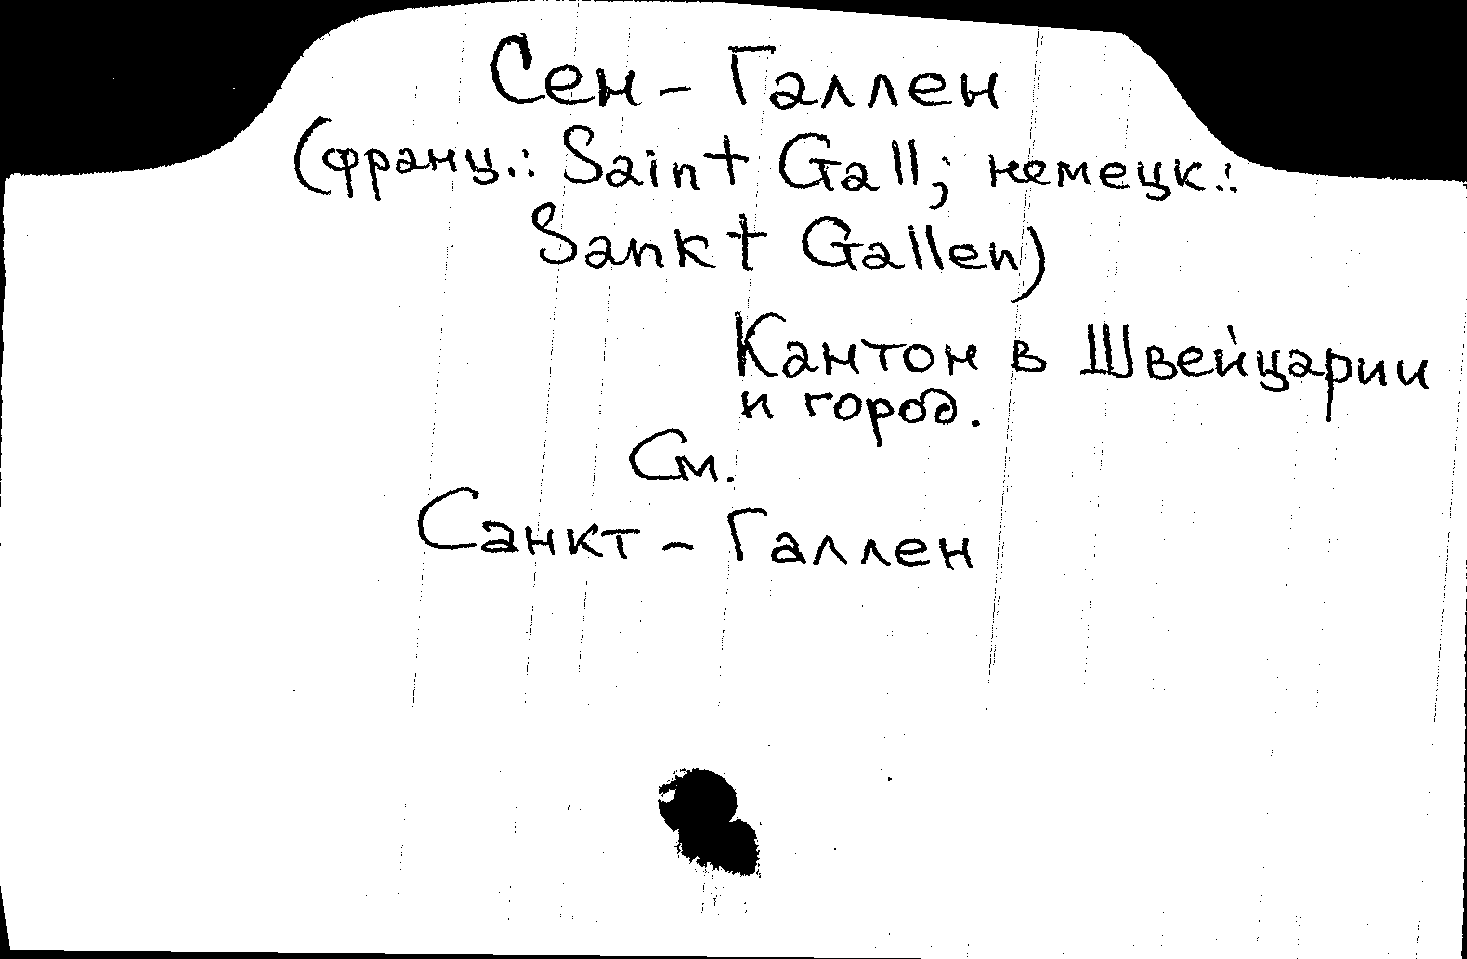 Сен - Галлен
(франц.: Saint Gall; немецк.:
Sankt Gallen)
Кантон в Швейцарии
и город.
См.
Санкт - Галлен